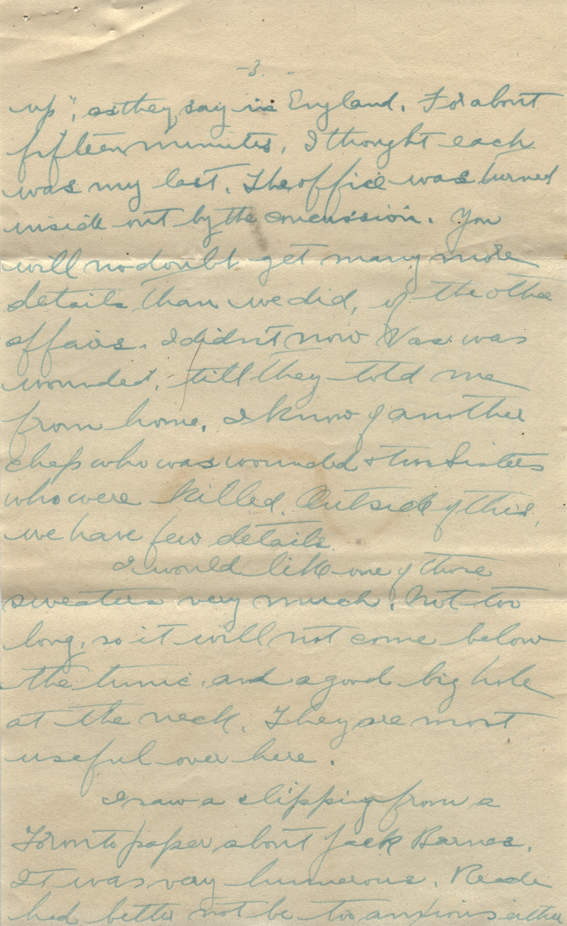 -3-
up", as they say in England. For about
fifteen minutes, I thought each
was my last. The office was turned
inside out by the concussion. You
will no doubt get many more
details than we did, of the other
affairs. I didn't now Vas. was
wounded, till they told me
from home. I know of another
chap who was wounded & two Sisters
who were killed. Outside of this,
we have few details.
I would like one of those
sweaters very much. Not too
long, so it will not come below
the tunic, and a good big hole
at the neck. They are most
useful over here.
I saw a clipping from a
Toronto paper about Jack Barnes.
It was very humorous. Reade
had better not be too anxious either